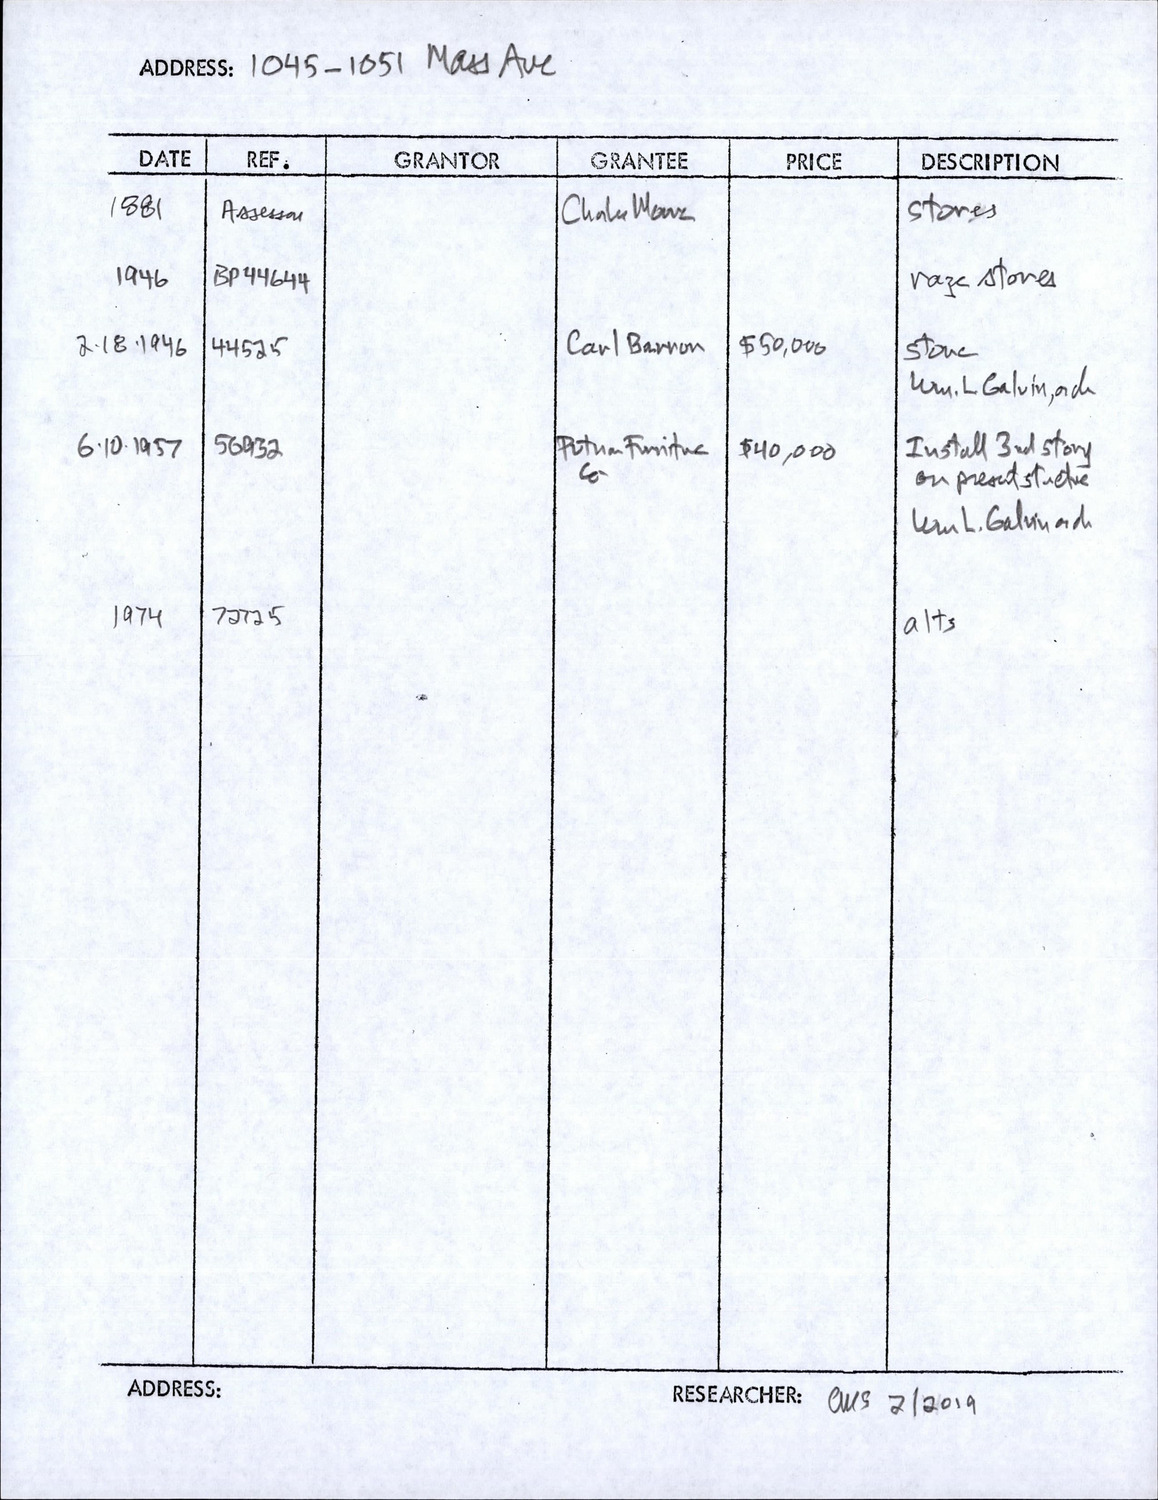 ADDRESS: 1045-1051 Mass Ave
DATE REF. GRANTOR GRANTEE PRICE DESCRIPTION
1881 Assessor stores
1946 BP44644 raze stores
2.18.1946 44525 Carl Barron $50,000 store
Wm. L Galvin, arch
6.10.1957 56932 Putnam Furniture $40,000 Install 3rd story
Co on present structure
Wm L. Galvin arch
1974 72725 alts
ADDRESS: RESEARCHER: 2/2019